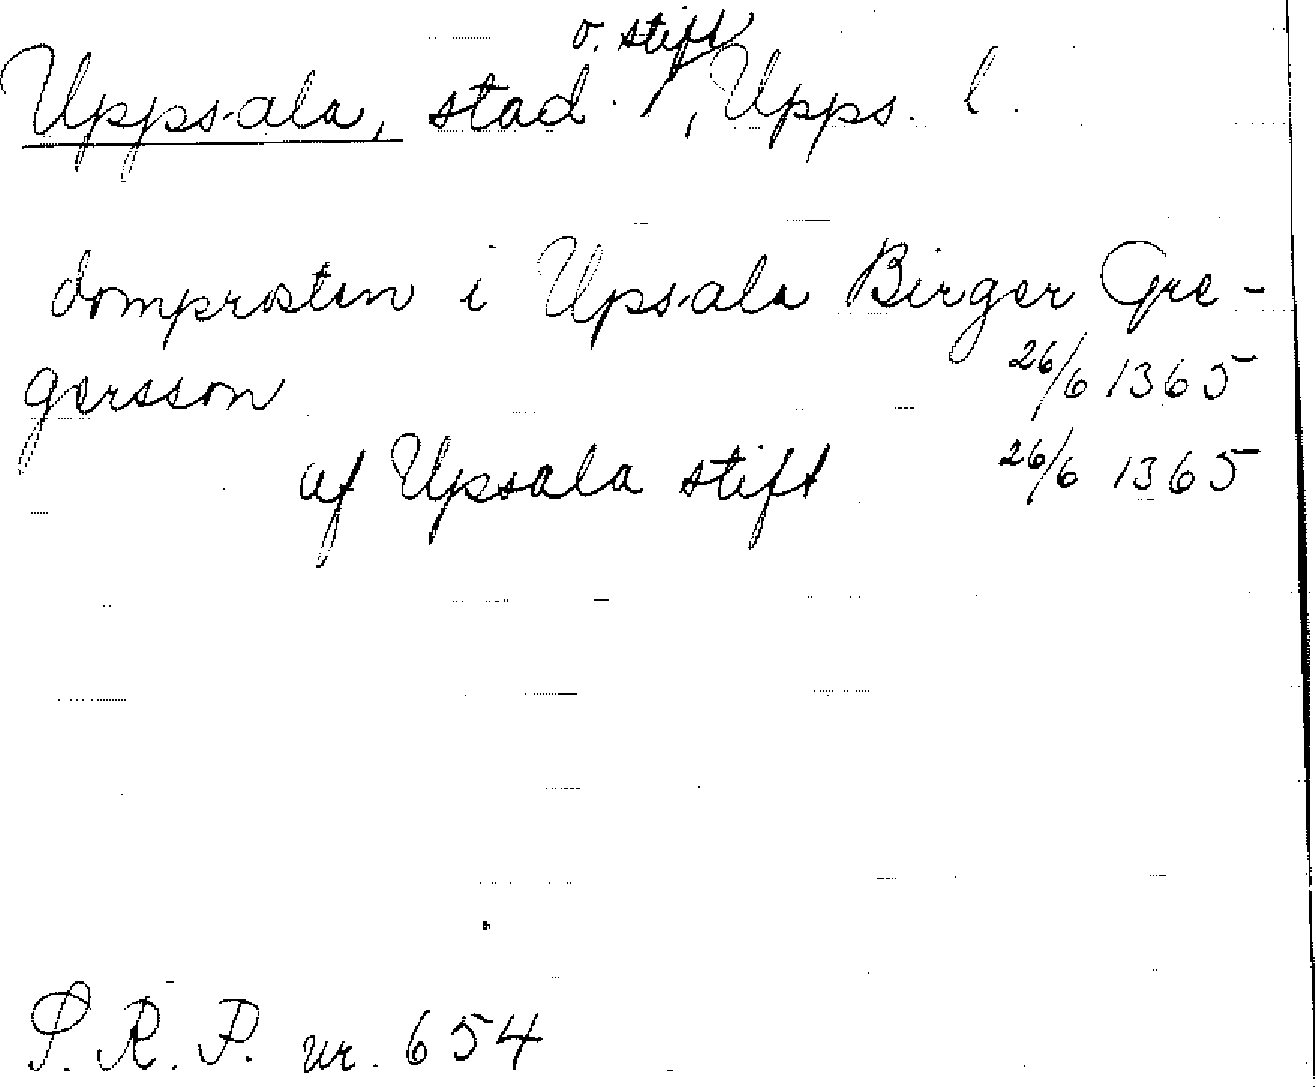 Uppsala, stad o. stift, Upps. l.
domprosten i Upsala Birger Gre-
gersson 26/6 1365
af Upsala stift 26/6 1365
S.R.P. nr. 654